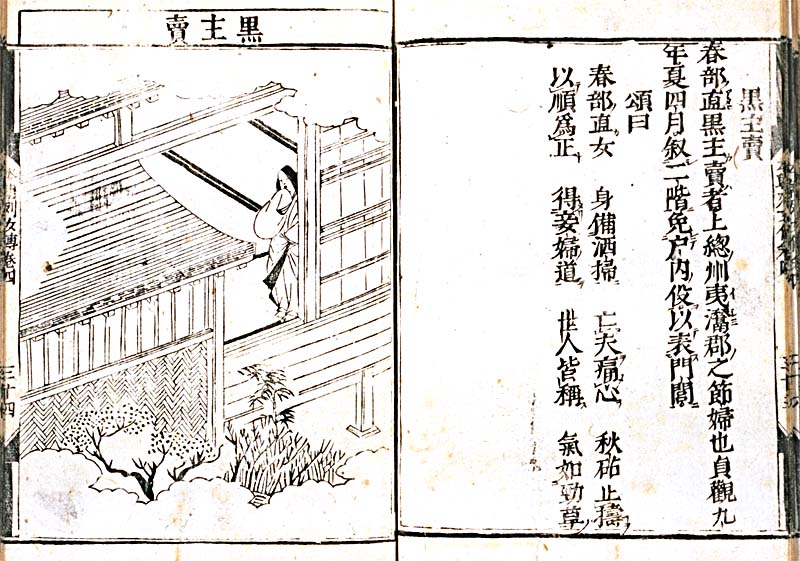 黒主賣
春部直黒主賣者上總州夷灊郡之節婦也貞觀九
年夏四月叙二階免戸内役以表門閭
頌曰
春部直女　身備洒掃　亡夫痛心　秋砧止擣
以順爲正　得妾婦道　世人皆稱　氣如勁草
黒主賣
列女傳卷四
三十四